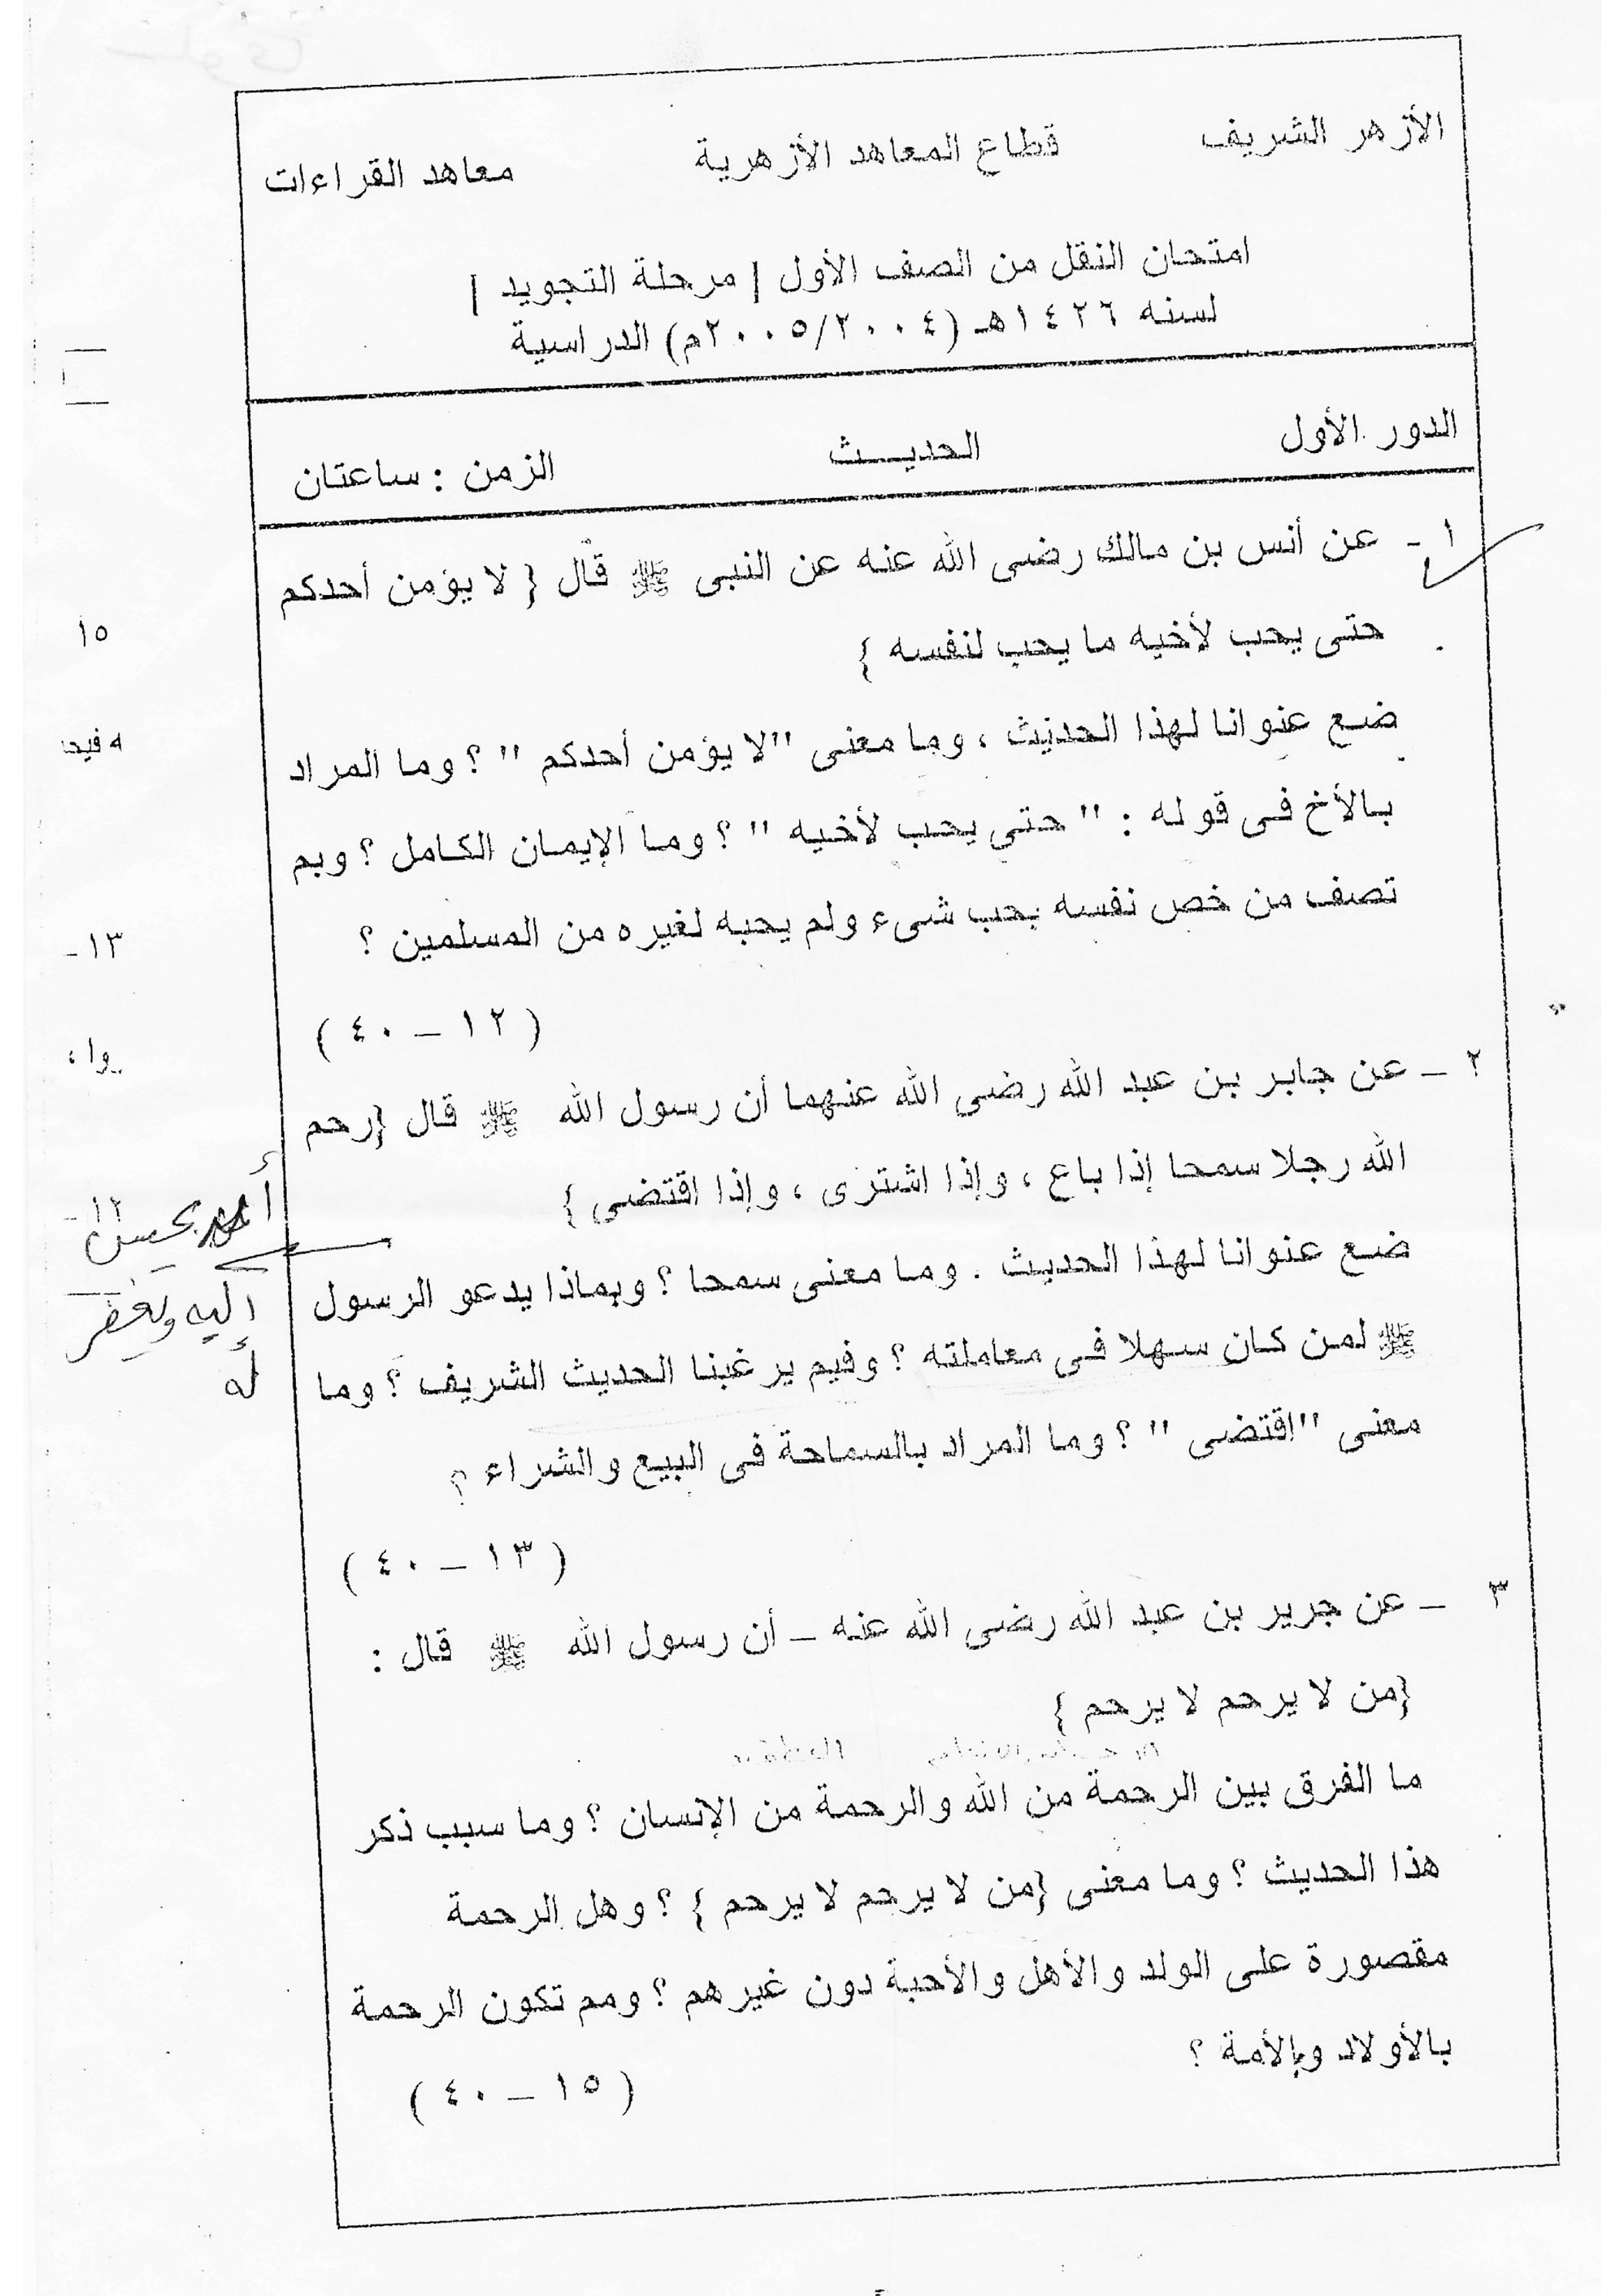 الأزهر الشريف قطاع المعاهد الأزهرية معاهد القراءات
امتحان النقل من الصف الأول / مرحلة التجويد /
لسنه ١٤٢٦هـ (٢٠٠٥/٢٠٠٤م) الدراسية
الدور الأول الحديث الزمن : ساعتان
١ - عن أنس بن مالك رضى الله عنه عن النبى ﷺ قال { لا يؤمن أحدكم
حتى يحب لأخيه ما يحب لنفسه }
ضع عنوانا لهذا الحديث ، وما معنى "لا يؤمن أحدكم " ؟ وما المراد
بالأخ فى قوله : " حتى يحب لأخيه " ؟ وما الإيمان الكامل ؟ وبم
تصف من خص نفسه بحب شىء ولم يحبه لغيره من المسلمين ؟
( ١٢ – ٤٠ )
٢ – عن جابر بن عبد الله رضى الله عنهما أن رسول الله ﷺ قال {رحم
الله رجلا سمحا إذا باع ، وإذا اشترى ، وإذا اقتضى }
ضع عنوانا لهذا الحديث . وما معنى سمحا ؟ وبماذا يدعو الرسول
ﷺ لمن كان سهلا فى معاملته ؟ وفيم يرغبنا الحديث الشريف ؟ وما
معنى "اقتضى " ؟ وما المراد بالسماحة فى البيع والشراء ؟
( ١٣ – ٤٠ )
٣ – عن جرير بن عبد الله رضى الله عنه – أن رسول الله ﷺ قال :
{من لا يرحم لا يرحم }
ما الفرق بين الرحمة من الله والرحمة من الإنسان ؟ وما سبب ذكر
هذا الحديث ؟ وما معنى {من لا يرحم لا يرحم } ؟ وهل الرحمة
مقصورة على الولد والأهل والأحبة دون غيرهم ؟ ومم تكون الرحمة
بالأولاد وبالأمة ؟
( ١٥ – ٤٠ )
١٥
١٣ -
إليه ويغفر
له